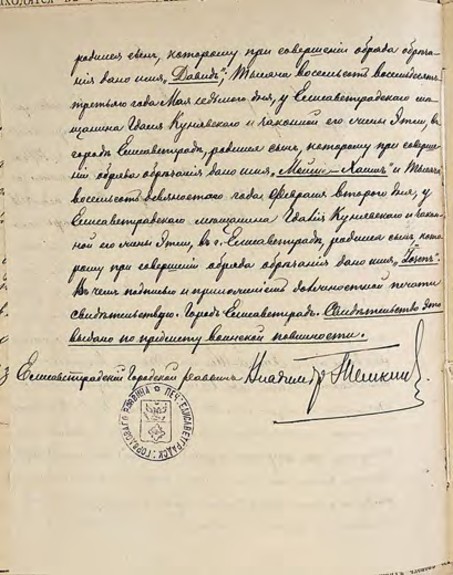 родился сынъ, которому при совершенiи обряда обрѣза-
нiя дано имя „Давидъ“; Тысяча восемьсотъ восемьдесятъ
третьяго года Мая седьмого дня, у Елисаветградскаго мѣ-
щанина Гдалiя Кунявскаго и законной его жены Эти, въ
городѣ Елисаветградѣ, родился сынъ, которому при соверше-
нiи обряда обрѣзанiя дано имя „ Хаимъ“ и Тысяча
восемьсотъ девяностаго года Февраля второго дня, у
Елисаветградскаго мѣщанина Гдалiя Кунявскаго и закон-
ной его жены Эти, въ г. Елисаветградѣ, родился сынъ, кото-
рому при совершенiи обряда обрѣзанiя дано имя „“.
Въ чемъ подписью и приложенiемъ должностной печати
свидѣтельствую. Городъ Елисаветградъ. Свидѣтельство это
выдано по предмету воинской повинности.
Елисаветградскiй Городской раввинъ Владимiр
ПЕЧ. ЕЛИСАВЕТГРАДСК. ГОРОДОВАГО РАВВИНА